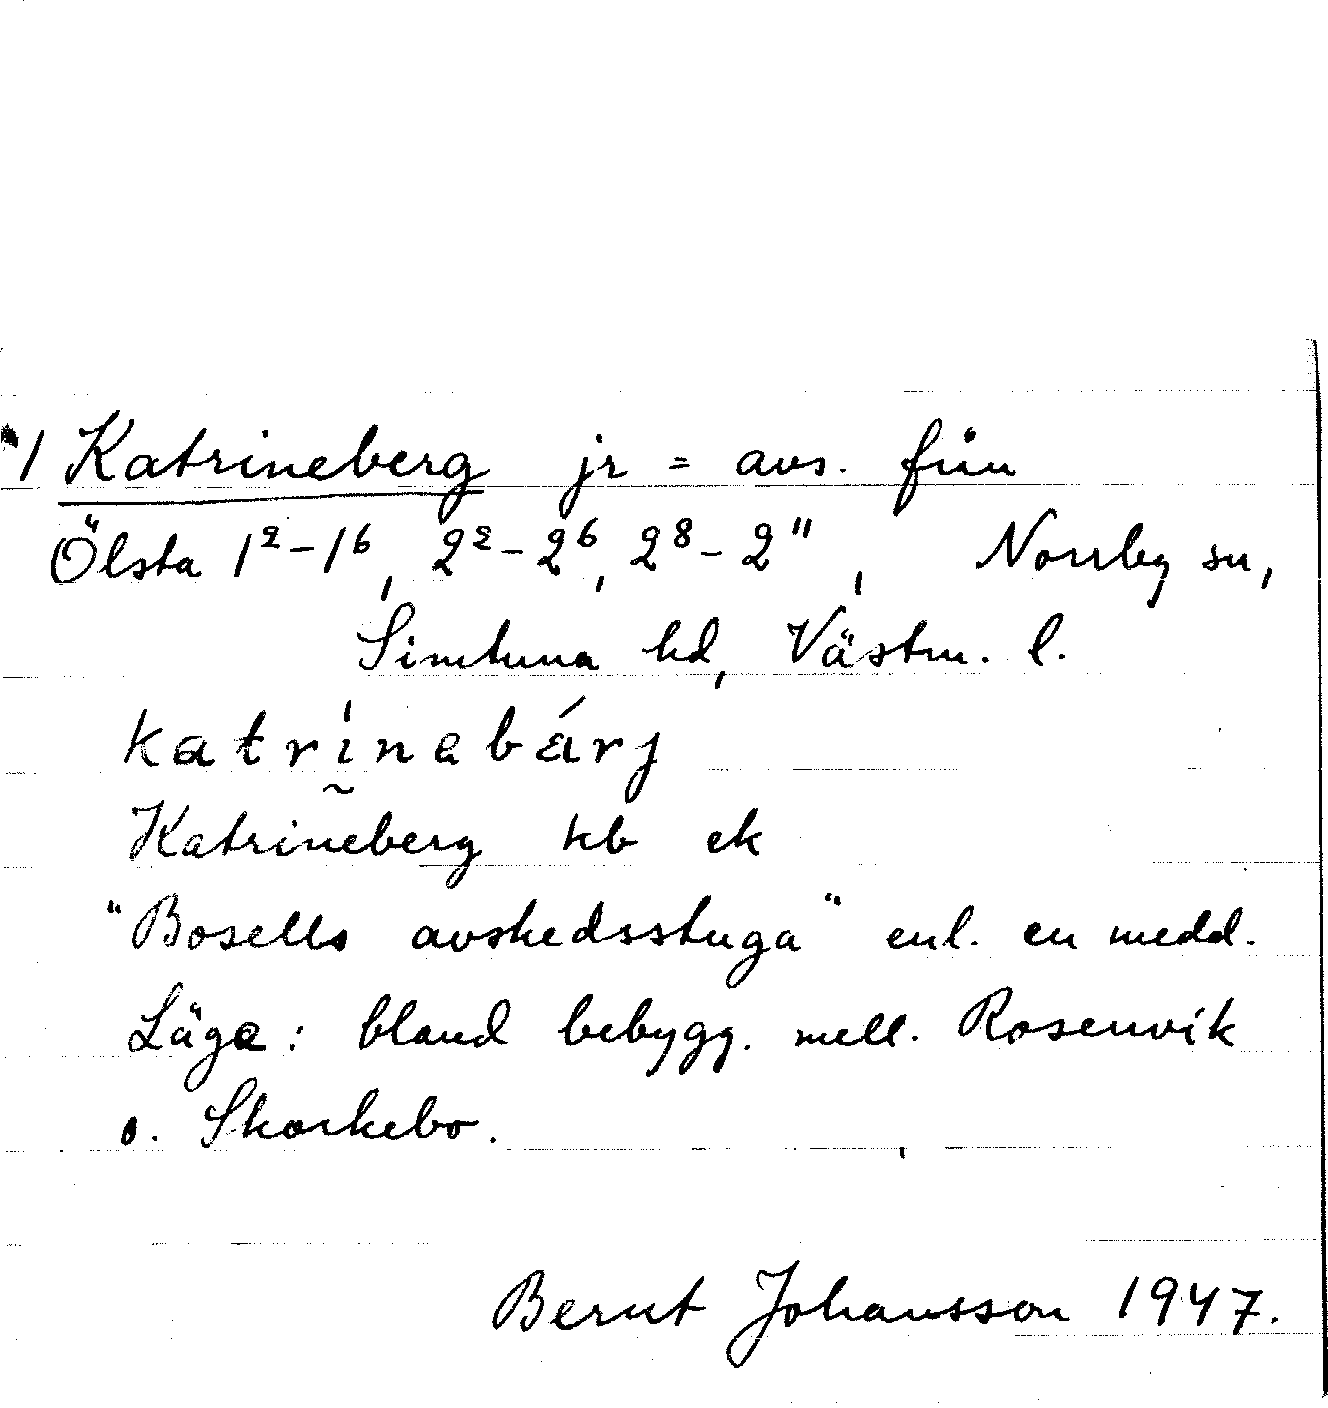 1 Katrineberg jr = avs. från
Ölsta 1²-1⁶, 2²-2⁶, 2⁸-2¹¹, Norrby sn,
Simtuna hd, Västm. l.
katrı̰́nabä́rj
Katrineberg kb ek
"Bosells avskedsstuga" enl. en medd.
Läge: bland bebygg. mell. Rosenvik
o. Skarkebo.
Bernt Johansson 1947.